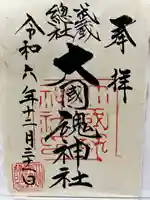 奉拝
武蔵
總社
大國魂神社
令和六年十月日